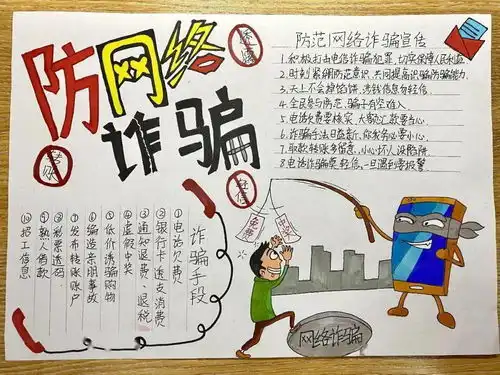 防网络
诈骗
防范网络诈骗宣传
1.积极打击电信诈骗犯罪,切实保障人民利益
2.时刻紧绷防范意识,共同提高识骗防骗能力
3.天上不会掉馅饼,涉钱信息勿轻信。
4.全民参与防范,骗子有空难入
5.电话欠费要核实,大额汇款要当心
6.诈骗手法日益新,你我务必要小心
7.取款转账多留意,小心坏人设陷阱
8.电话诈骗莫轻信,一旦遇到要报警
轻信
免费
诈骗手段
①电话欠费
②银行卡透支消费
③通知退费、退税
④虚假中奖
⑤低价诱骗购物
⑥编造亲朋事故
⑦发布转账账户
⑧彩票透码
⑨熟人借款
⑩招工信息
网络诈骗